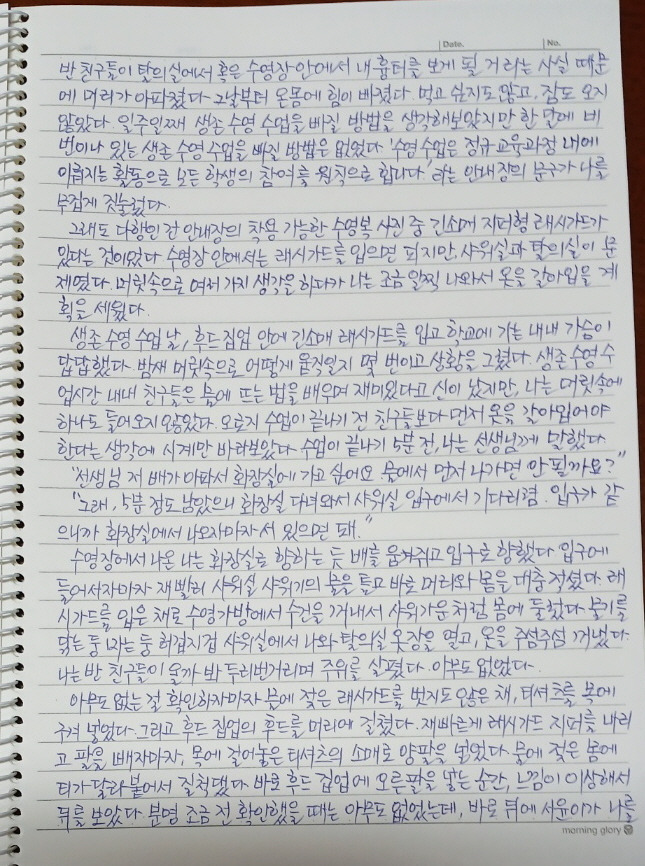 Date.
No.
반 친구들이 탈의실에서 혹은 수영장 안에서 내 흉터를 보게 될 거라는 사실 때문
에 머리가 아파졌다. 그날부터 온몸에 힘이 빠졌다. 먹고 싶지도 않고, 잠도 오지
않았다. 일주일째 생존 수영 수업을 빠질 방법을 생각해보았지만 한 달에 네
번이나 있는 생존 수영 수업을 빠질 방법은 없었다. '수영 수업은 정규 교육과정 내에
이뤄지는 활동으로 모든 학생의 참여를 원칙으로 합니다.'라는 안내장의 문구가 나를
무겁게 짓눌렀다.
그래도 다행인 건 안내장의 착용 가능한 수영복 사진 중 긴소매 지퍼형 래시가드가
있다는 것이었다. 수영장 안에서는 래시가드를 입으면 되지만, 샤워실과 탈의실이 문
제였다. 머릿속으로 여러 가지 생각을 하다가 나는 조금 일찍 나와서 옷을 갈아입을 계
획을 세웠다.
생존 수영 수업 날, 후드 집업 안에 긴소매 래시가드를 입고 학교에 가는 내내 가슴이
답답했다. 밤새 머릿속으로 어떻게 움직일지 몇 번이고 상황을 그렸다. 생존 수영 수
업시간 내내 친구들은 물에 뜨는 법을 배우며 재미있다고 신이 났지만, 나는 머릿속에
하나도 들어오지 않았다. 오로지 수업이 끝나기 전 친구들보다 먼저 옷을 갈아입어야
한다는 생각에 시계만 바라보았다. 수업이 끝나기 5분 전, 나는 선생님께 말했다.
"선생님 저 배가 아파서 화장실에 가고 싶어요. 물에서 먼저 나가면 안 될까요?"
"그래, 5분 정도 남았으니 화장실 다녀와서 샤워실 입구에서 기다리렴. 입구가 같
으니까 화장실에서 나오자마자 서 있으면 돼."
수영장에서 나온 나는 화장실로 향하는 듯 배를 움켜쥐고 입구로 향했다. 입구에
들어서자마자 재빨리 샤워실 샤워기의 물을 틀고 바로 머리와 몸을 대충 적셨다. 래
시가드를 입은 채로 수영가방에서 수건을 꺼내서 샤워가운처럼 몸에 둘렀다. 물기를
닦는 둥 마는 둥 허겁지겁 샤워실에서 나와 탈의실 옷장을 열고, 옷을 주섬주섬 꺼냈다.
나는 반 친구들이 올까 봐 두리번거리며 주위를 살폈다. 아무도 없었다.
아무도 없는 걸 확인하자마자 물에 젖은 래시가드를 벗지도 않은 채, 티셔츠를 목에
구겨 넣었다. 그리고 후드 집업의 후드를 머리에 걸쳤다. 재빠르게 래시가드 지퍼를 내리
고 팔을 빼자마자, 목에 걸어놓은 티셔츠의 소매로 양팔을 넣었다. 물에 젖은 몸에
티가 달라붙어서 질척댔다. 바로 후드 집업에 오른팔을 넣는 순간, 느낌이 이상해서
뒤를 보았다. 분명 조금 전 확인했을 때는 아무도 없었는데, 바로 뒤에 서윤이가 나를
morning glory